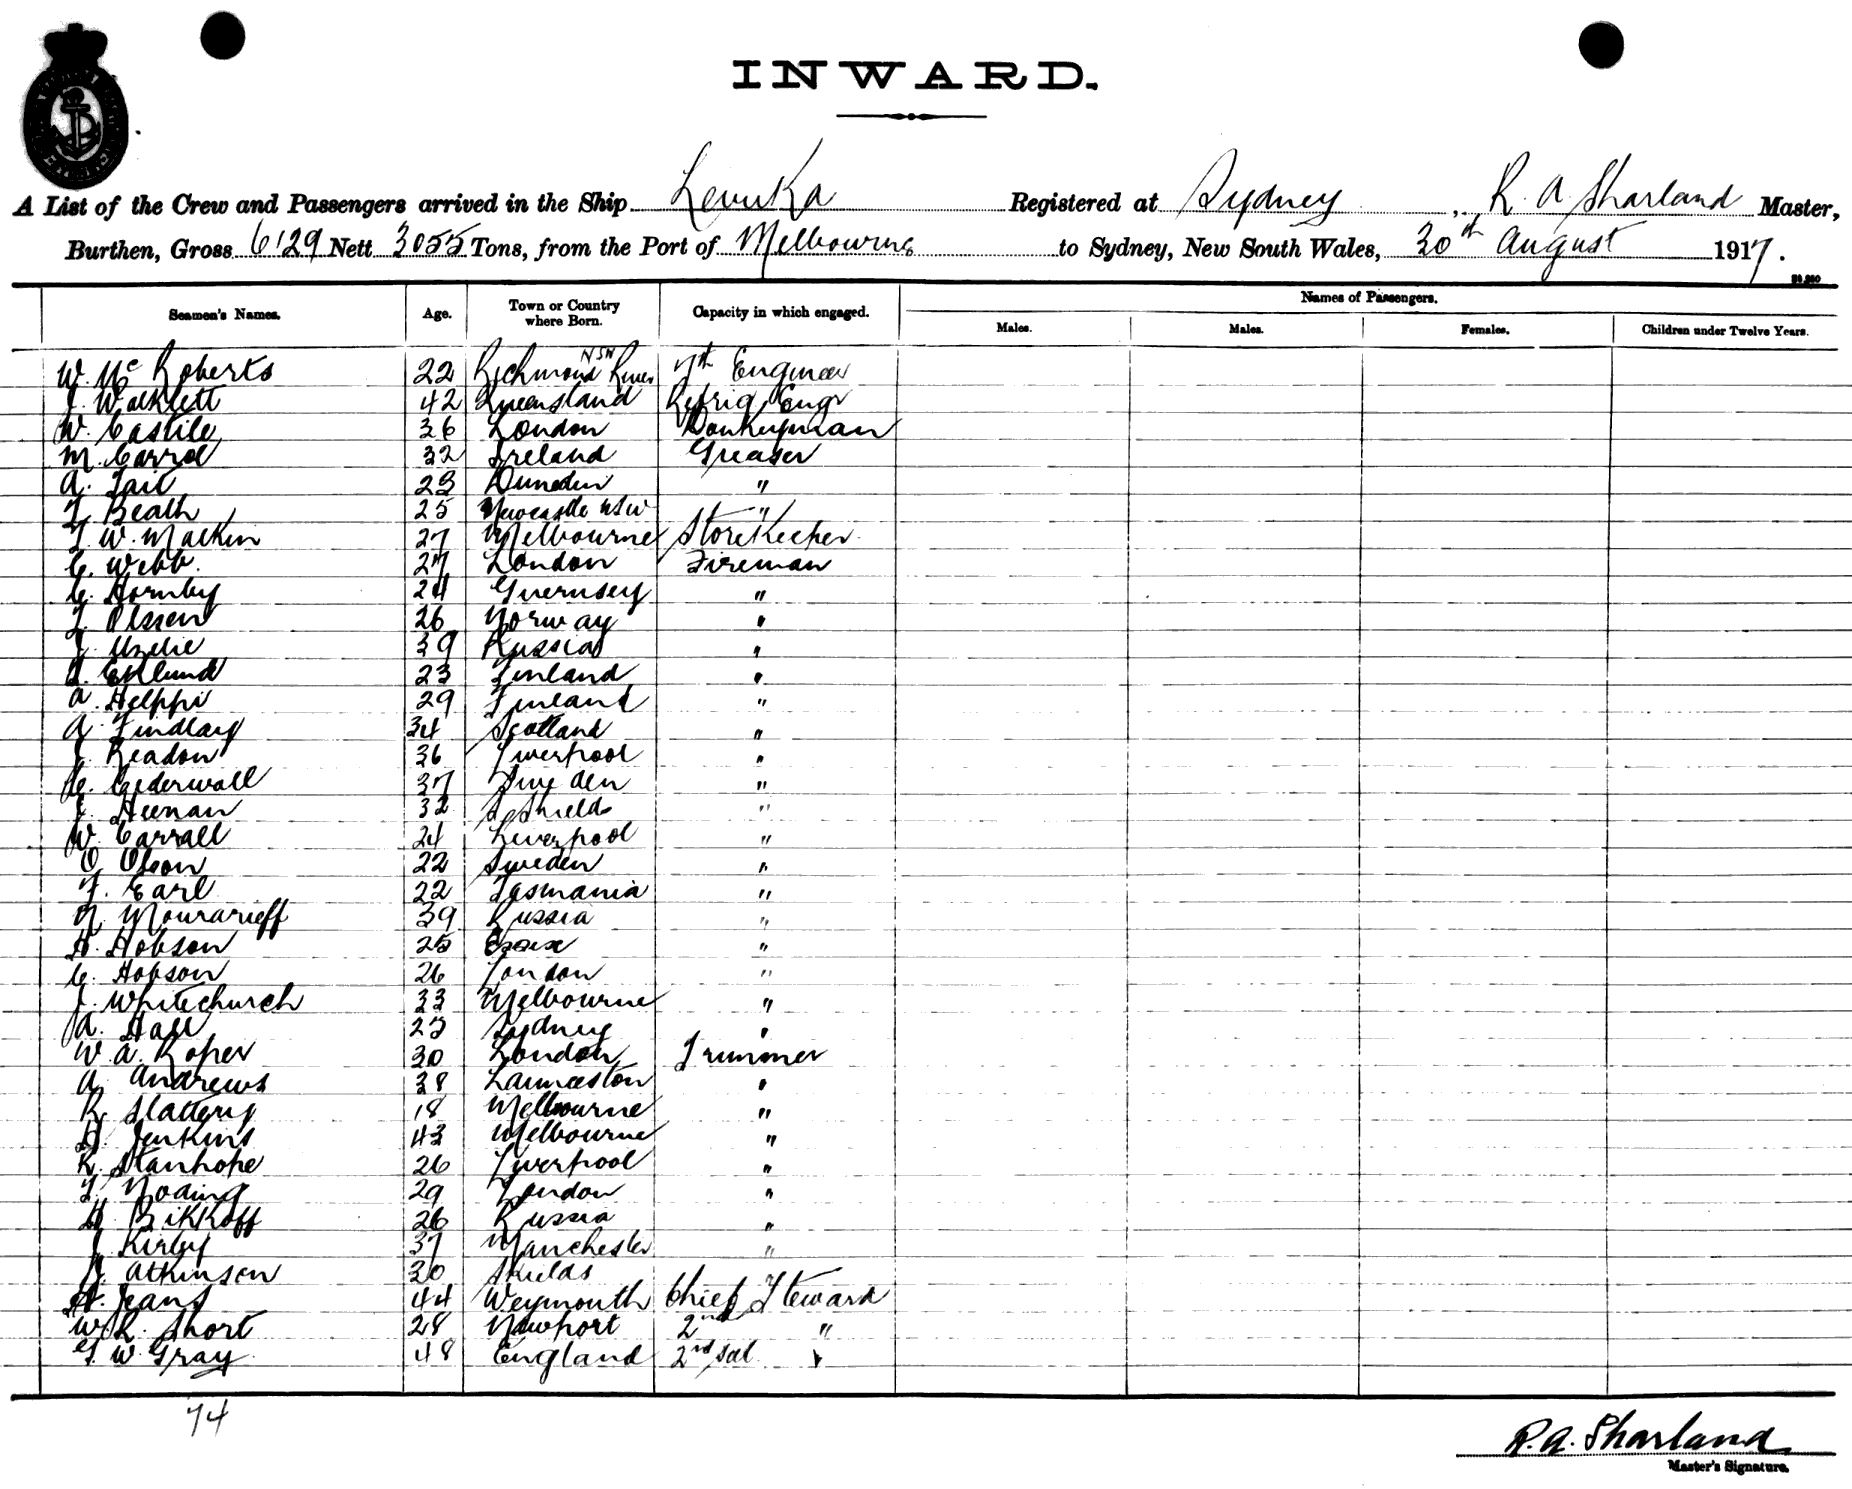 INWARD.
A List of the Crew and Passengers arrived in the Ship Levuka Registered at Sydney, R. A Sharland Master,
Burthen, Gross 6129 Nett 3055 Tons, from the Port of Melbourne to Sydney, New South Wales, 30th August 1917.
Names of Passengers.
Seamen's Names. Age. Town or Country where Born. Capacity in which engaged. Males. Males. Females. Children under Twelve Years.
W. Mc Roberts 22 Richmond River NSW 7th Engineer
J. Wacklett 42 Queensland Refrig Engr
W. Castile 36 London Donkeyman
M. Carrol 32 Ireland Greaser
A. Tait 23 Dunedin "
Beath 25 Newcastle NSW "
W. Mackin 27 Melbourne Storekeeper
C. Webb. 27 London Fireman
C. Hornby 24 Guernsey "
Olssen 26 Norway "
39 Russia "
Eklund 23 Finland "
A. Helppi 29 Finland "
A. Findlay 34 Scotland "
J. Readon 36 Liverpool "
C. Cederwall 37 Sweden "
J. Heenan 32 S. Shields "
W. Carrall 24 Liverpool "
O Olson 22 Sweden "
F. Earl 22 Tasmania "
N. Mourarieff 39 Russia "
H. Hobson 25 Essex "
C. Hobson 26 London "
J. Whitechurch 33 Melbourne "
A. Hall 23 Sydney "
W. A. Roper 30 London Trimmer
A. Andrews 38 Launceston "
R. Slattery 18 Melbourne "
H. Jenkins 43 Melbourne "
R. Stanhope 26 Liverpool "
Noding 29 London "
Bikkoff 26 Russia "
J. Kirby 37 Manchester "
Atkinson 30 Shields
H. Jeans 44 Weymouth Chief Steward
W. R. Short 28 Newport 2nd "
W. Gray 48 England 2nd Sal "
74
R. A. Sharland
Master's Signature.